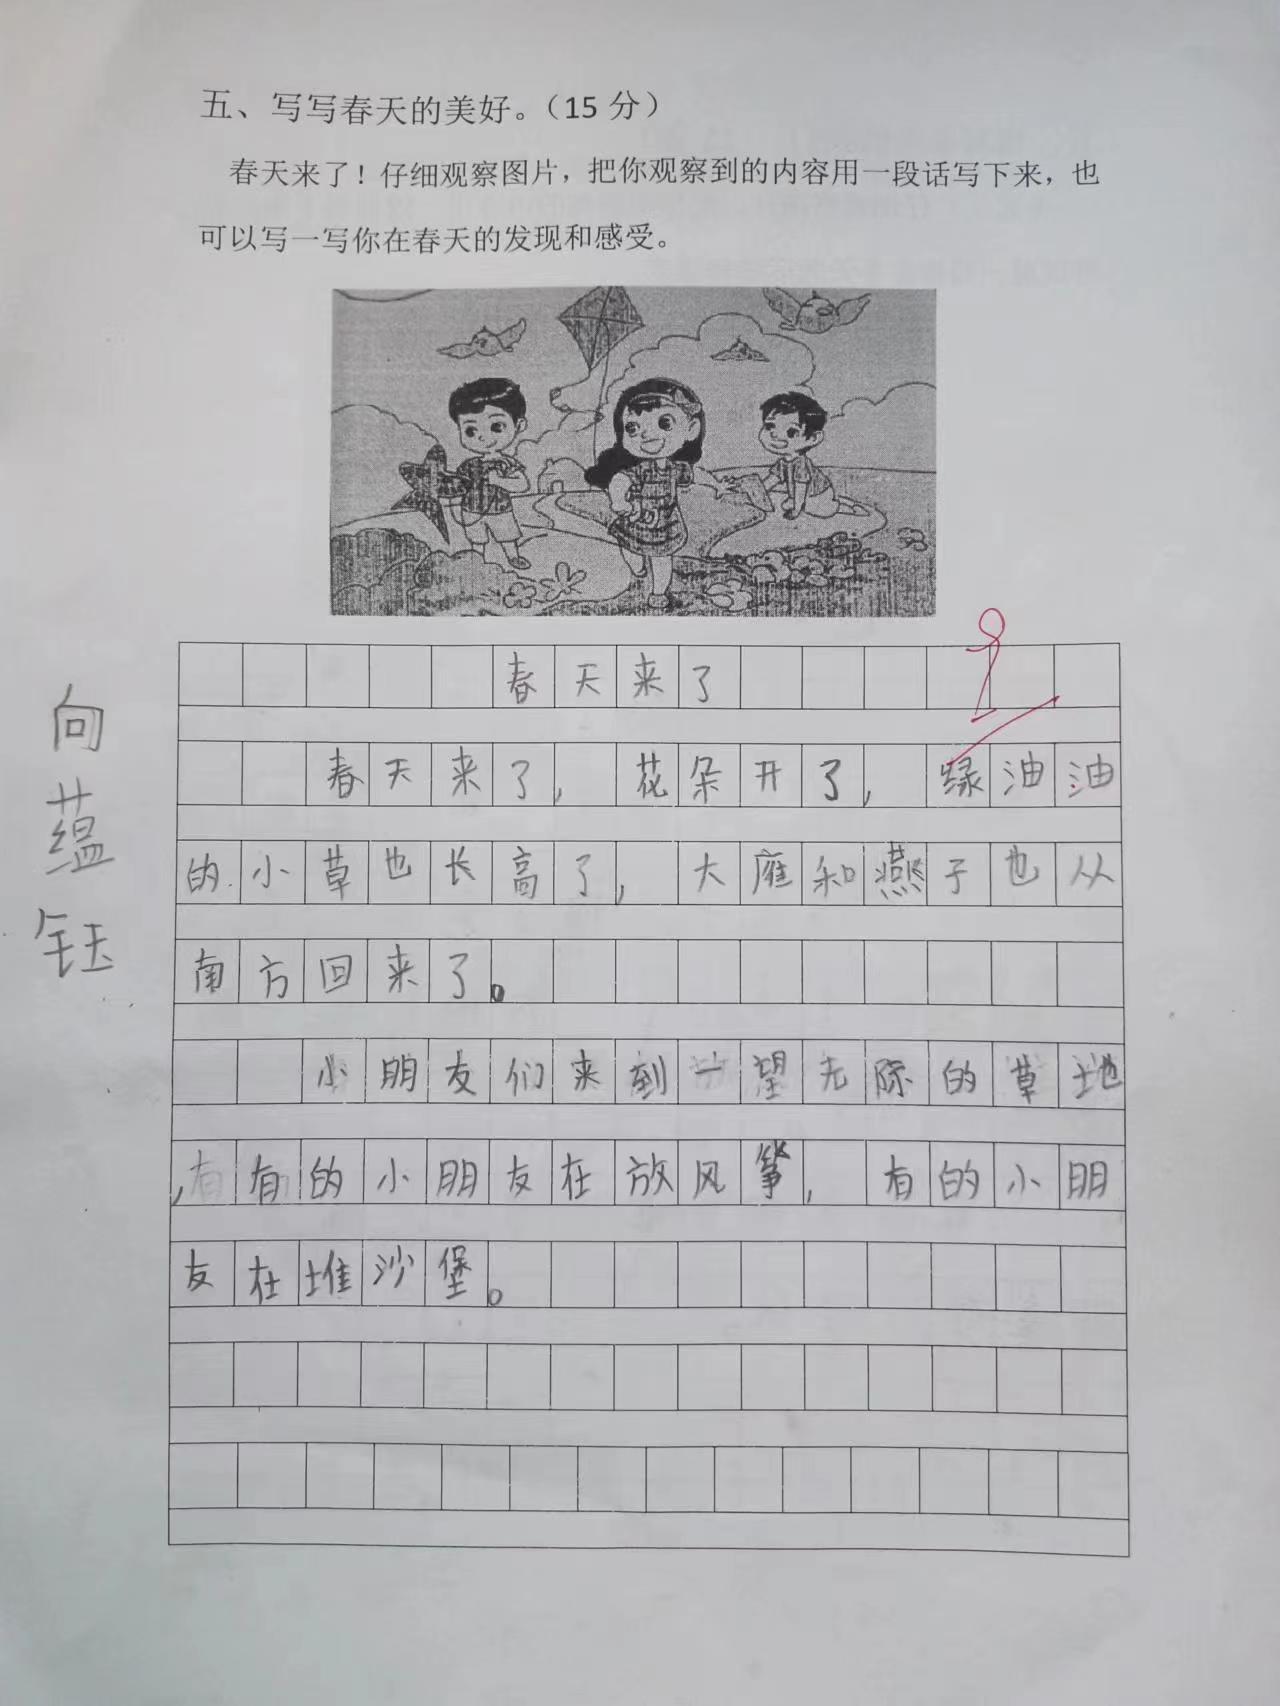 五、写写春天的美好。（15 分）
春天来了！仔细观察图片，把你观察到的内容用一段话写下来，也
可以写一写你在春天的发现和感受。
春天来了
春天来了，花朵开了，绿油油
的小草也长高了，大雁和燕子也从
南方回来了。
小朋友们来到一望无际的草地
，有有的小朋友在放风筝，有的小朋
友在堆沙堡。
向蕴钰